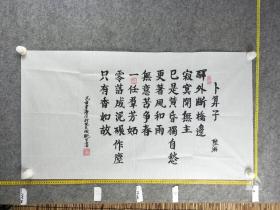 卜算子
陸游
驛外斷橋邊
寂寞開無主
已是黄昏獨自愁
更著風和雨
無意苦爭春
一任羣芳妒
零落成泥碾作塵
只有香如故